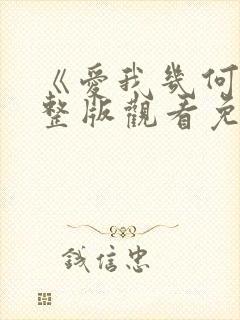 《愛我幾何
整版觀看免
錢信忠